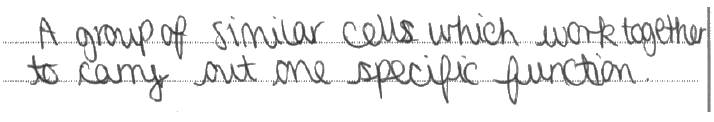 A group of similar cells which work together
to carry out one specific function.